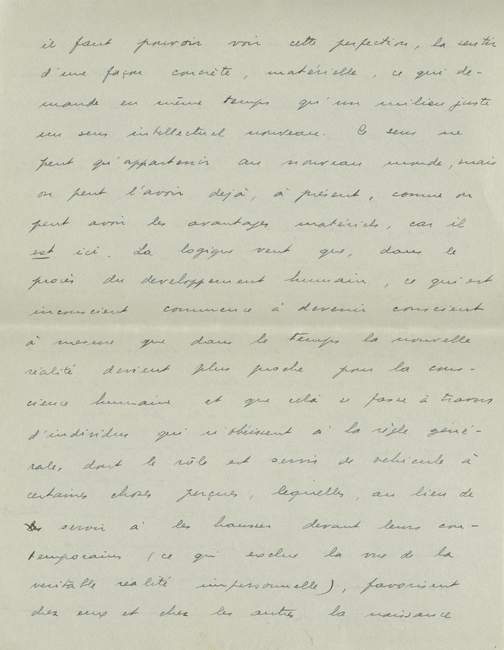 il faut pouvoir voir cette perfection, la sentir
d'une façon concrète, matérielle, ce qui de-
mande en même temps qu'un milieu juste
un sens intellectuel nouveau. Ce sens ne
peut qu'appartenir au nouveau monde, mais
on peut l'avoir dejà, à présent, comme on
peut avoir les avantages matériels, car il
est ici. La logique veut que, dans le
procès du developpement humain, ce qui est
inconscient commence à devenir conscient
à mesure que dans le temps la nouvelle
réalité devient plus proche pour la cons-
cience humaine et que celà se fasse à travers
d'individus qui n'obéissent à la règle géné-
rale, dont le rôle est servir de vehicule à
certaines choses perçues, lesquelles, au lieu de
servir à les hausser devant leurs con-
temporains (ce qui exclue la vue de la
veritable realité impersonnelle), favorisent
chez eux et chez les autres la naissance